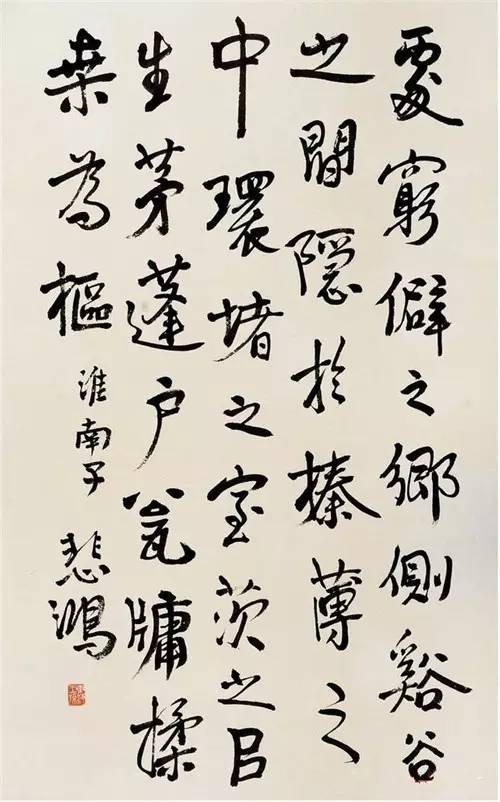 處窮僻之鄉側谿谷
之間隱於榛薄之
中環堵之室茨之㠯
生茅蓬户瓮牖揉
桒為樞
淮南子
悲鴻